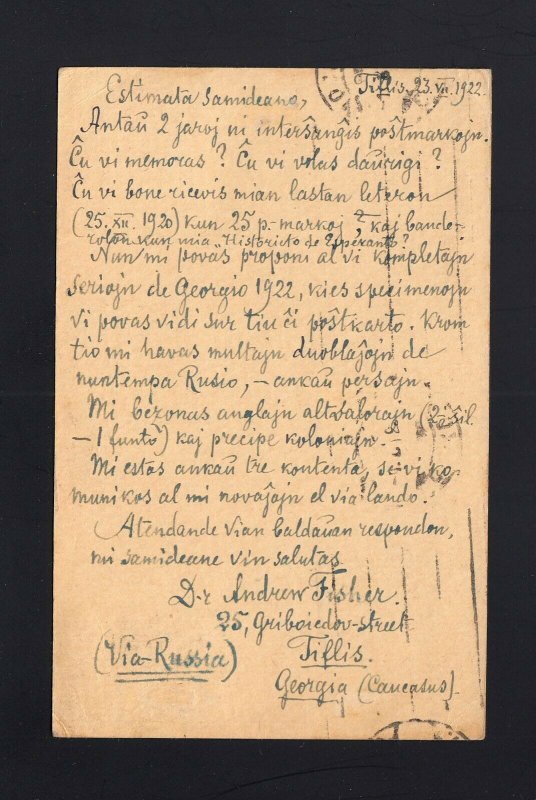 Tiflis, 23.VII.1922.
Estimata samideano,
Antaŭ 2 jaroj ni interŝanĝis poŝtmarkojn.
Ĉu vi memoras? Ĉu vi volas daŭrigi?
Ĉu vi bone ricevis mian lastan leteron
(25.XII.1920) kun 25 p.-markoj, kaj bande-
rolon kun mia „Historieto de Esperanto"?
Nun mi povas proponi al vi kompletajn
seriojn de Georgio 1922, kies specimenojn
vi povas vidi sur tiu ĉi poŝtkarto. Krom
tio mi havas multajn duoblaĵojn de
nuntempa Rusio, – ankaŭ persajn.
Mi bezonas anglajn altvalorajn (2 ŝil.
– 1 funto) kaj precipe koloniajn.
Mi estas ankaŭ tre kontenta, se vi ko-
munikos al mi novaĵojn el via lando.
Atendande vian baldaŭan respondon,
mi samideane vin salutas
D-r Andrew Fisher.
25, Griboiedov-street
(Via-Russia) Tiflis.
Georgia (Caucasus).